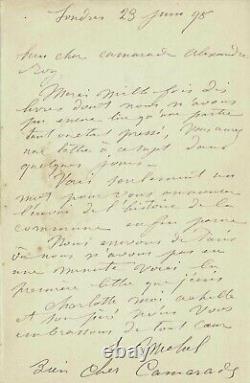 Londres 23 juin 98
cher camarade Alexandre
Roy
Merci mille fois des
livres dont nous n'avons
pas encore lu qu'une partie
tant on était pressé, vous aurez
une lettre à ce sujet dans
quelques jours.
Voici seulement un
mot pour vous annoncer
l'envoi de l'histoire de la
commune enfin parue
Nous arrivons de Paris
où nous n'avons pas eu
une minute voici la
première lettre que j'écris
Charlotte moi Achille
et son père nous vous
embrassons de tout cœur
L Michel
Bien cher Camarade